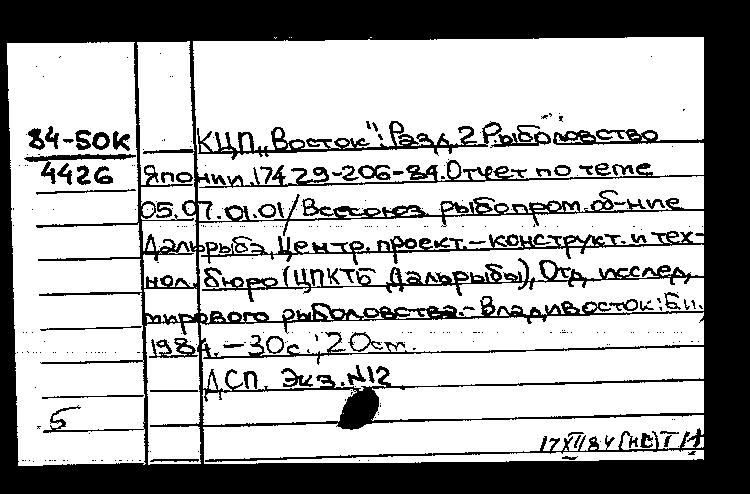 84-50К
4426
КЦП „Восток": Разд. 2 Рыболовство
Японии. 17429-206-84. Отчет по теме
05.07.01.01/Всесоюз. рыбопром. об-ние
Дальрыба, Центр. проект.-конструкт. и тех-
нол. бюро (ЦПКТБ Дальрыбы), Отд. исслед.
мирового рыболовства.-Владивосток: Б.и.,
1984. - 30с.; 20см.
ДСП. Экз. N12
5
17 XII 84